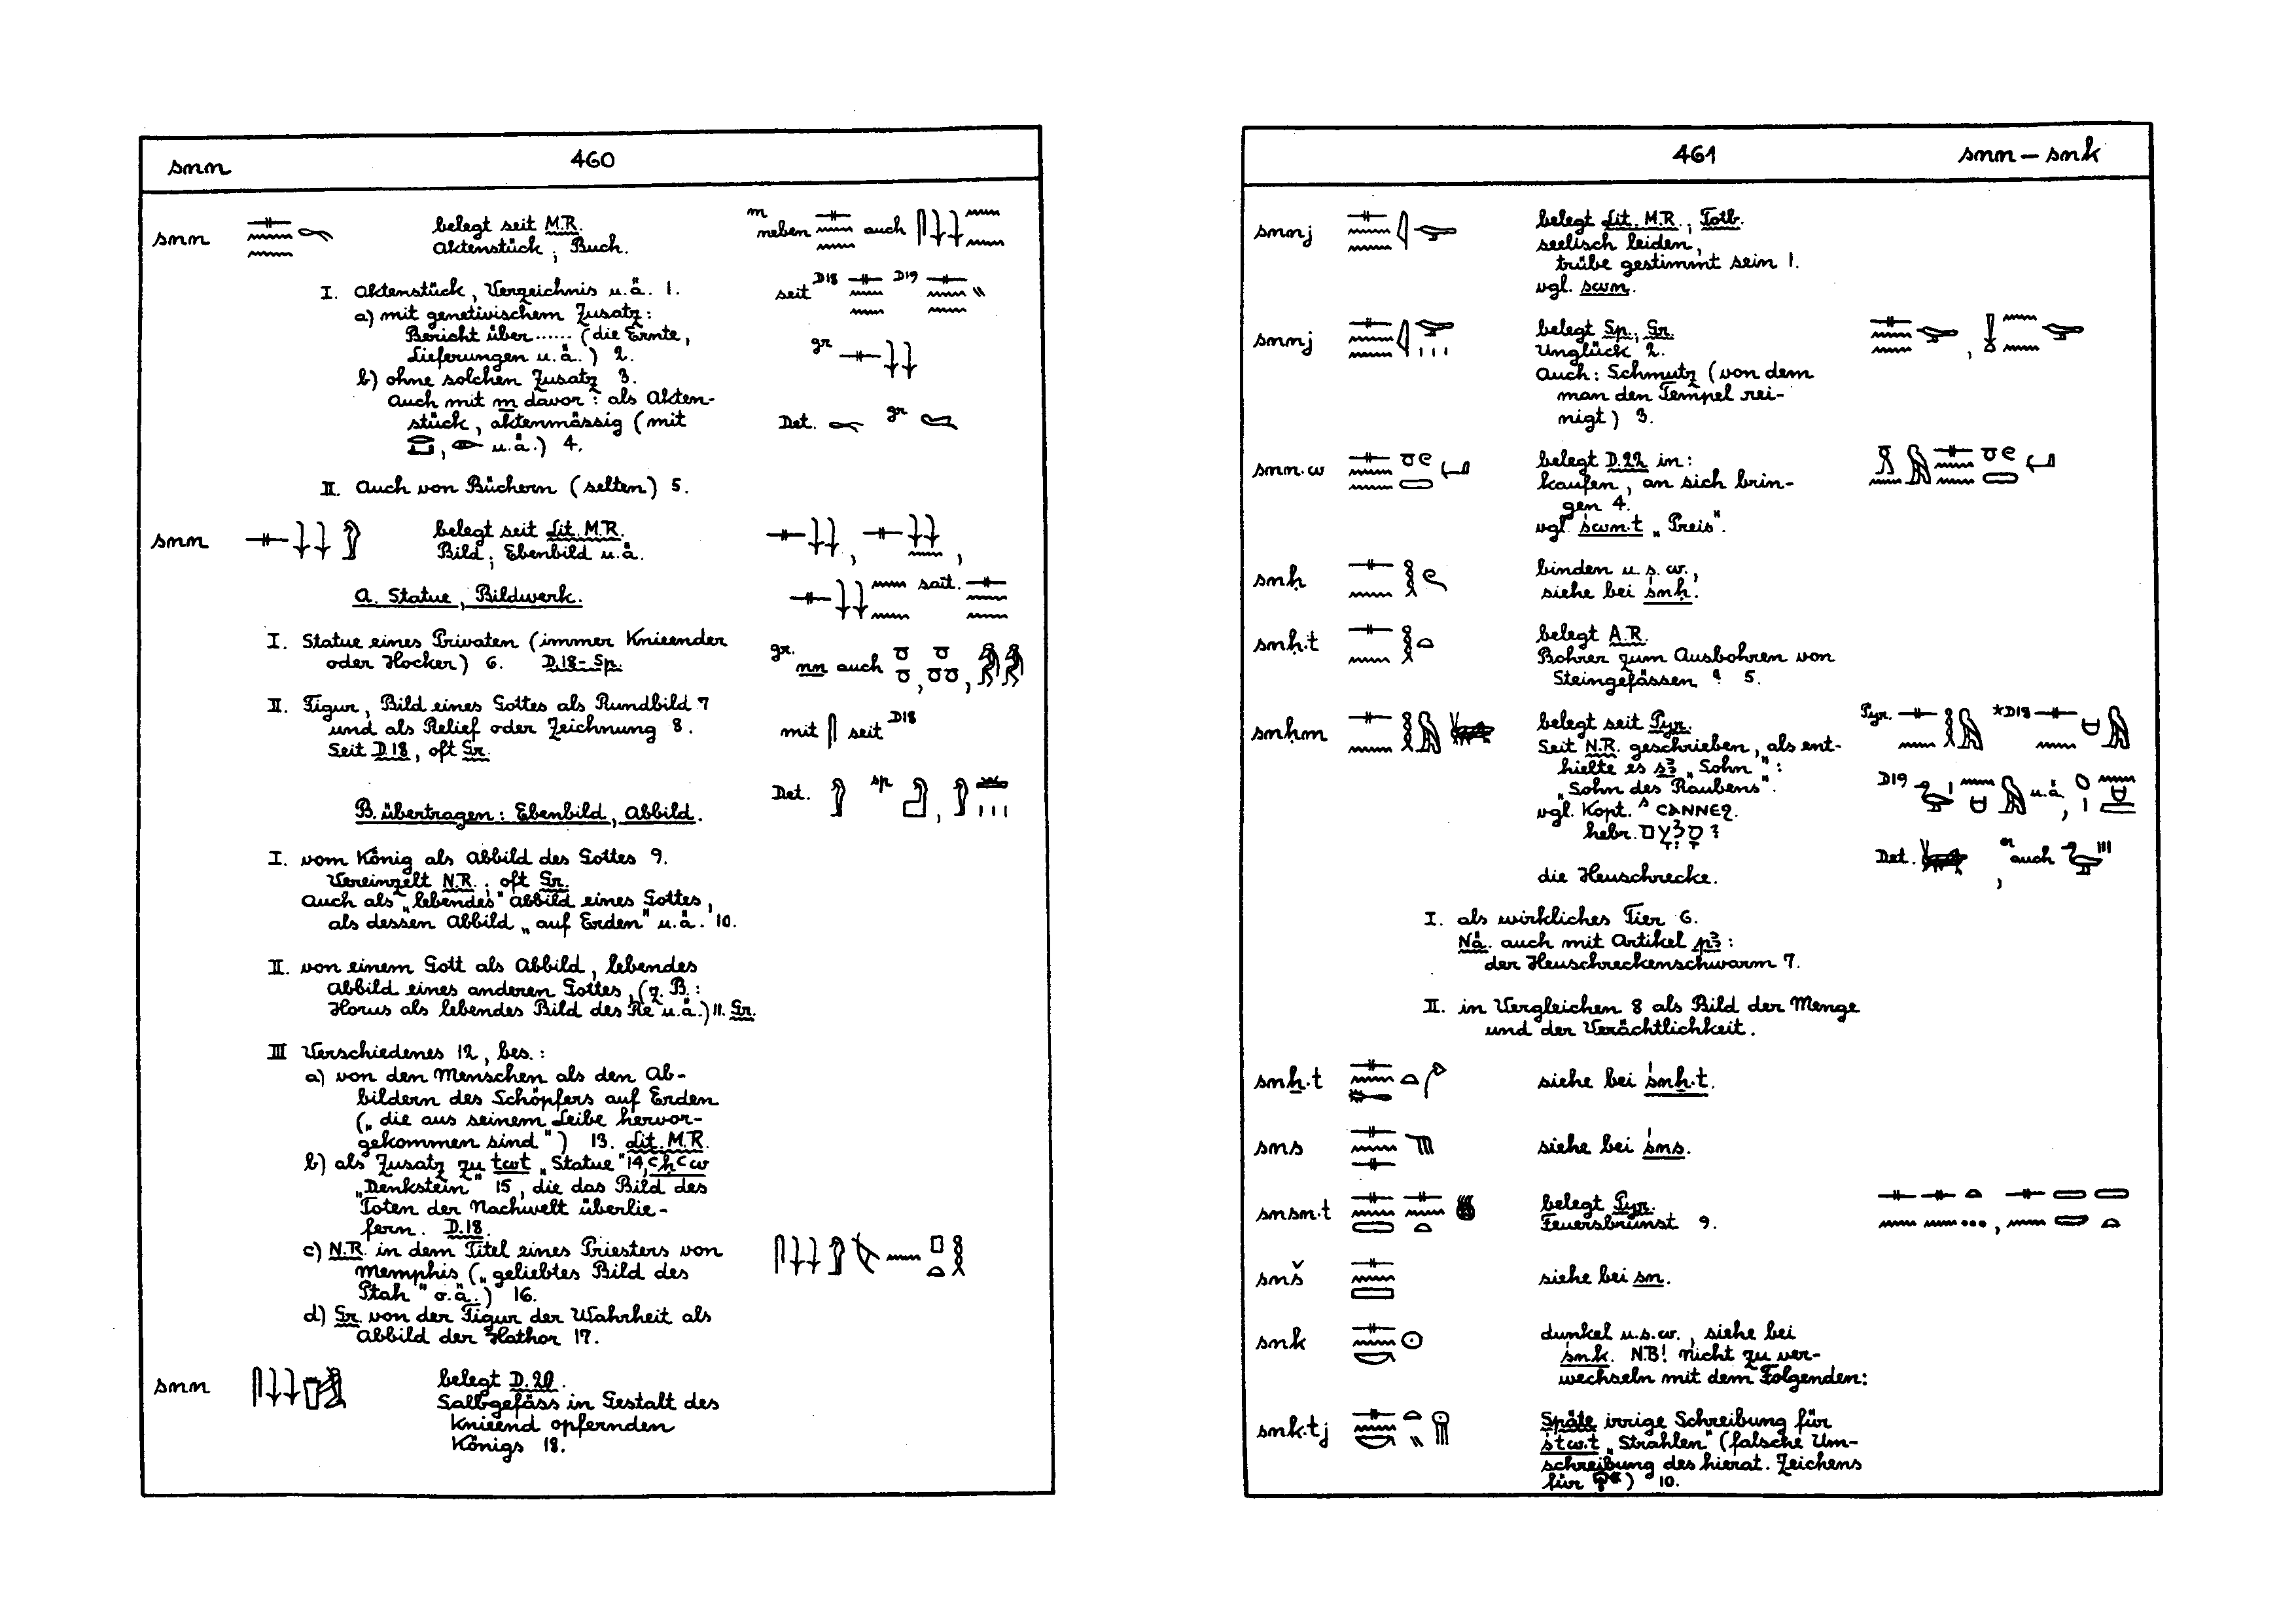 snn 460
snn belegt seit M.R.
Aktenstück; Buch.
neben auch
I. Aktenstück, Verzeichnis u.ä. 1.
seit D18 D19
a) mit genetivischem Zusatz:
Bericht über ...... (die Ernte,
Lieferungen u.ä.) 2.
gr
b) ohne solchen Zusatz 3.
Auch mit m davor: als Akten-
stück, aktenmässig (mit
Det. gr
, u.ä.) 4.
II. Auch von Büchern (selten) 5.
snn belegt seit Lit. M.R.
Bild; Ebenbild u.ä.
A. Statue, Bildwerk.
sait.
I. Statue eines Privaten (immer Knieender
oder Hocker) 6. D.18-Sp.
gr. nn auch
II. Figur, Bild eines Gottes als Rundbild 7
und als Relief oder Zeichnung 8.
Seit D.18, oft Gr.
mit seit D18
Det. sp
B. übertragen: Ebenbild, Abbild.
I. vom König als Abbild des Gottes 9.
Vereinzelt N.R.; oft Gr.
Auch als „lebendes" Abbild eines Gottes,
als dessen Abbild „auf Erden" u.ä. 10.
II. von einem Gott als Abbild, lebendes
Abbild eines anderen Gottes, (z.B.:
Horus als lebendes Bild des Re u.ä.) 11. Gr.
III Verschiedenes 12, bes.:
a) von den Menschen als den Ab-
bildern des Schöpfers auf Erden
(„die aus seinem Leibe hervor-
gekommen sind") 13. Lit. M.R.
b) als Zusatz zu twt „Statue" 14, ꜥḥꜥw
„Denkstein" 15, die das Bild des
Toten der Nachwelt überlie-
fern. D.18.
c) N.R. in dem Titel eines Priesters von
Memphis („geliebtes Bild des
Ptah" o.ä.) 16.
d) Gr. von der Figur der Wahrheit als
Abbild der Hathor 17.
snn belegt D.20.
Salbgefäss in Gestalt des
Knieend opfernden
Königs 18.
461 snn – snk
snnj belegt Lit. M.R.; Totb.
seelisch leiden,
trübe gestimmt sein 1.
vgl. swn.
snnj belegt Sp., Gr.
Unglück 2.
Auch: Schmutz (von dem
man den Tempel rei-
nigt) 3.
snn.w belegt D.22 in:
kaufen, an sich brin-
gen 4.
vgl. swn.t „Preis".
snḥ binden u.s.w.,
siehe bei śnḥ.
snḥ.t belegt A.R.
Bohrer zum Ausbohren von
Steingefässen ? 5.
snḥm belegt seit Pyr.
Pyr. *D18
Seit N.R. geschrieben, als ent-
hielte es sꜣ „Sohn":
„Sohn des Raubens".
D19 u.ä.
vgl. Kopt. ᴬ ⲤⲀⲚⲚⲈϨ.
hebr. סָלְעָם ?
Det. auch
die Heuschrecke.
I. als wirkliches Tier 6.
Nä. auch mit Artikel pꜣ:
der Heuschreckenschwarm 7.
II. in Vergleichen 8 als Bild der Menge
und der Verächtlichkeit.
snẖ.t siehe bei śnẖ.t.
sns siehe bei śns.
snsn.t belegt Pyr.
Feuersbrunst 9.
snš siehe bei sn.
snk dunkel u.s.w., siehe bei
śnk. N.B! nicht zu ver-
wechseln mit dem Folgenden:
snk.tj Späte irrige Schreibung für
śtw.t „Strahlen" (falsche Um-
schreibung des hierat. Zeichens
für ) 10.